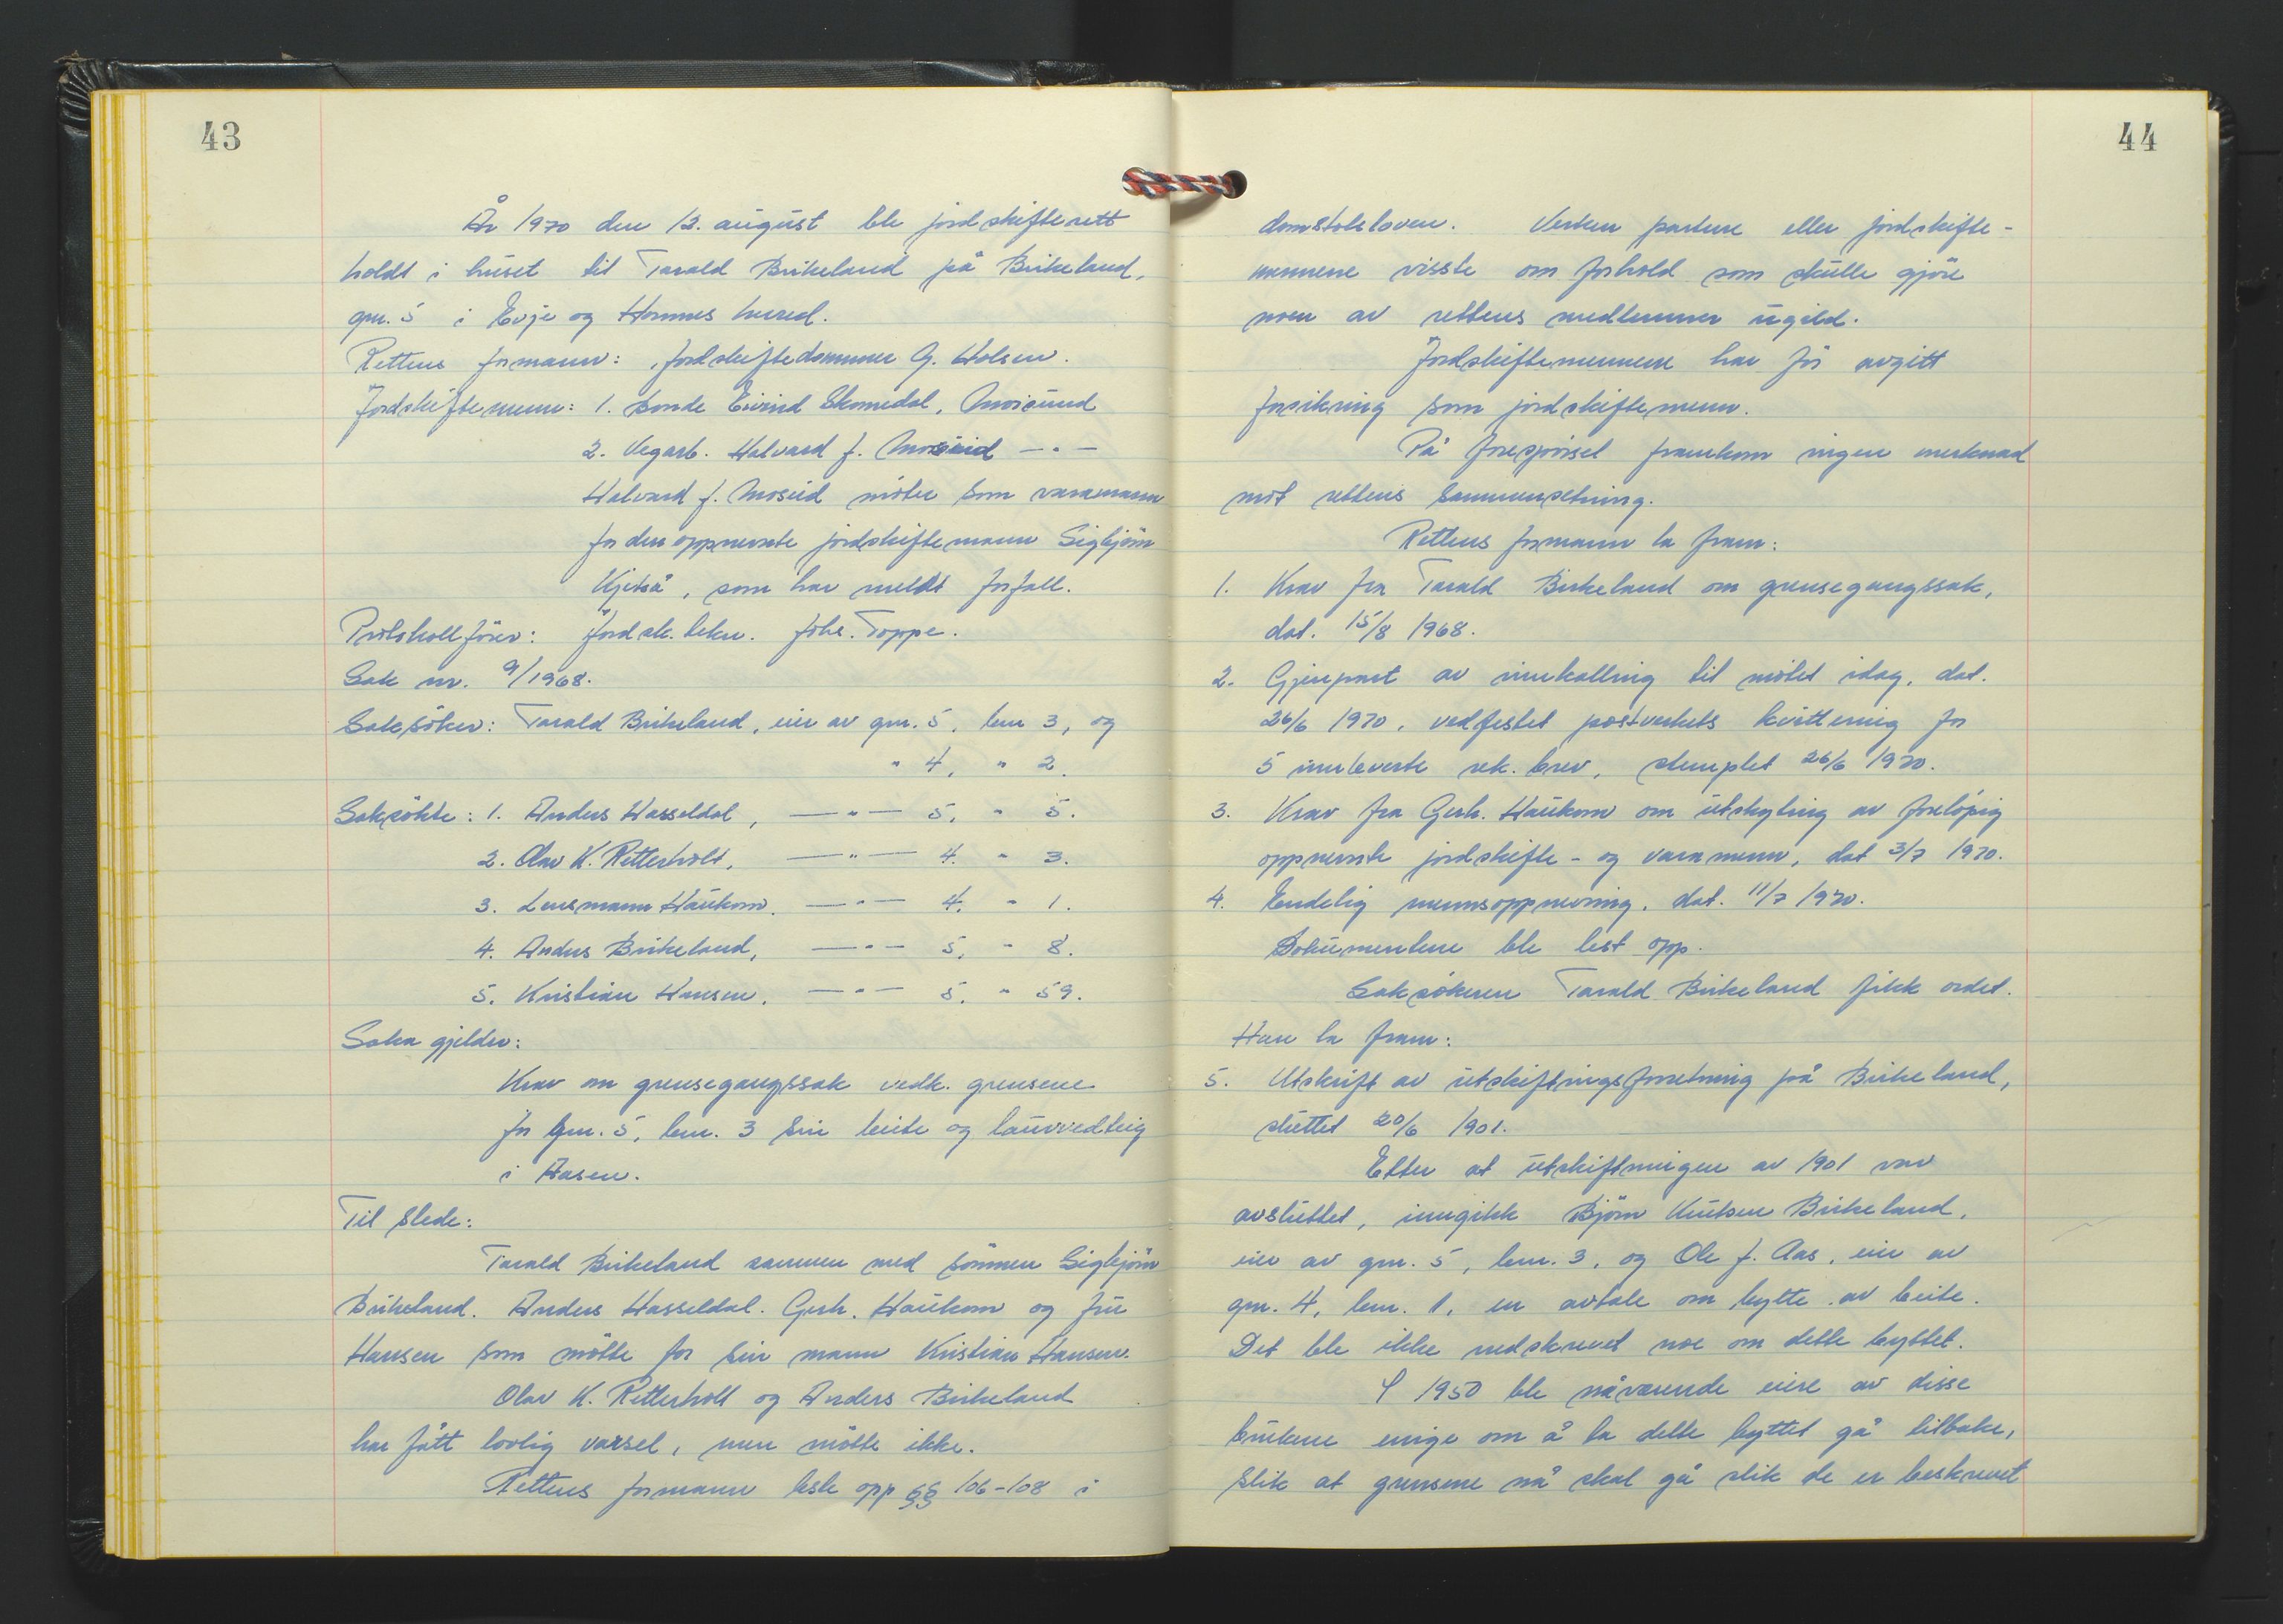 43
År 1970 den 12. august ble jordskifterett
holdt i huset til Tarald Birkeland på Birkeland,
gnr. 5 i Evje og Hornnes herred.
Rettens formann: Jordskiftedommer G. Holsen.
Jordskiftemenn: 1. Bonde Eivind Skomedal, Mosi­und
2. Vegarb. Halvard J. Moseid — " —
Halvard J. Moseid møter som varamann
for den oppnevnte jordskiftemann Sigbjörn
Kjetså, som har meldt forfall.
Protokollförer: Jordsk.tekn. Johs. Toppe.
Sak nr. 9/1968.
Saksöker: Tarald Birkeland, eier av gnr. 5, bnr 3, og
" 4, " 2.
Saksökte: 1. Anders Hasseldal, — " — 5, " 5.
2. Olav K. Retterholt, — " — 4. " 3.
3. Lensmann Haukom, — " — 4, " 1.
4. Anders Birkeland, — " — 5, " 8.
5. Kristian Hansen, — " — 5, " 59.
Saka gjelder:
Krav om grensegangssak vedk. grensene
for gnr. 5, bnr. 3 sin beite og lauvvedteig
i Aasen.
Til stede:
Tarald Birkeland sammen med sönnen Sigbjörn
Birkeland. Anders Hasseldal. Gerh. Haukom og fru
Hansen som mötte for sin mann Kristian Hansen.
Olav K. Retterholt og Anders Birkeland
har fått lovlig varsel, men mötte ikke.
Rettens formann leste opp §§ 106-108 i
44
domstolsloven. Verken partene eller jordskifte-
mennene visste om forhold som skulle gjöre
noen av rettens medlemmer ugild.
Jordskiftemennene har för avgitt
forsikring som jordskiftemenn.
På forespörsel framkom ingen merknad
mot rettens sammensetning.
Rettens formann la fram:
1. Krav fra Tarald Birkeland om grensegangssak,
dat. 15/8 1968.
2. Gjenpart av innkalling til mötet idag, dat.
26/6 1970, vedfestet postverkets kvittering for
5 innleverte rek. brev, stemplet 26/6 1970.
3. Krav fra Gerh. Haukom om utskyting av forelöpig
oppnevnte jordskifte- og varamenn, dat 3/7 1970.
4. Endelig mennsoppnevning, dat. 11/7 1970.
Dokumentene ble lest opp.
Saksökeren Tarald Birkeland fikk ordet.
Han la fram:
5. Utskrift av utskiftningsforretning på Birkeland,
sluttet 20/6 1901.
Etter at utskiftningen av 1901 var
avsluttet, inngikk Björn Knutsen Birkeland,
eier av gnr. 5, bnr. 3, og Ole J. Aas, eier av
gnr. 4, bnr. 1, en avtale om bytte av beite.
Det ble ikke nedskrevet noe om dette byttet.
I 1950 ble nåværende eiere av disse
brukene enige om å la dette byttet gå tilbake,
slik at grensene nå skal gå slik de er beskrevet